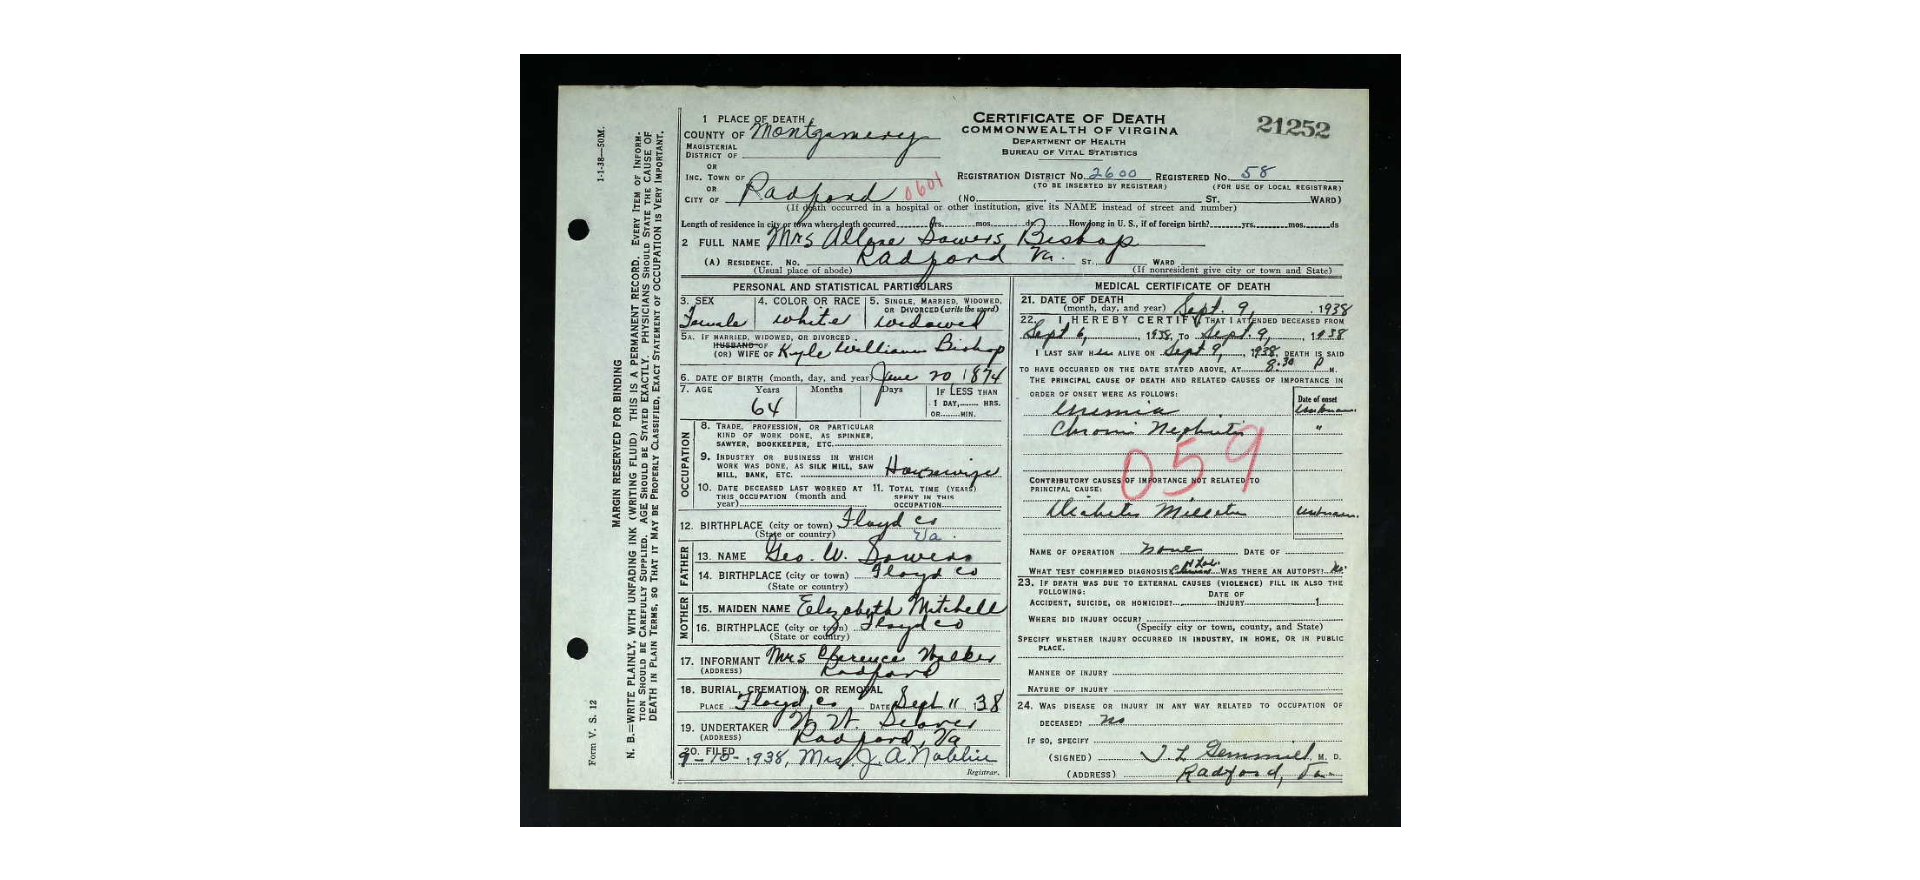 1-1-38—50M.
MARGIN RESERVED FOR BINDING
N. B.—WRITE PLAINLY, WITH UNFADING INK (WRITING FLUID) THIS IS A PERMANENT RECORD. EVERY ITEM OF INFORM-
TION SHOULD BE CAREFULLY SUPPLIED. AGE SHOULD BE STATED EXACTLY. PHYSICIANS SHOULD STATE THE CAUSE OF
DEATH IN PLAIN TERMS, SO THAT IT MAY BE PROPERLY CLASSIFIED, EXACT STATEMENT OF OCCUPATION IS VERY IMPORTANT.
Form V. S. 12
CERTIFICATE OF DEATH
COMMONWEALTH OF VIRGINIA
DEPARTMENT OF HEALTH
BUREAU OF VITAL STATISTICS
21252
1 PLACE OF DEATH
COUNTY OF Montgomery
MAGISTERIAL
DISTRICT OF
OR
INC. TOWN OF
OR
CITY OF Radford 0601
REGISTRATION DISTRICT NO. 2600 REGISTERED NO. 58
(TO BE INSERTED BY REGISTRAR) (FOR USE OF LOCAL REGISTRAR)
(No. ST. WARD)
(If death occurred in a hospital or other institution, give its NAME instead of street and number)
Length of residence in city or town where death occurred yrs. mos. ds. How long in U. S., if of foreign birth? yrs. mos. ds
2 FULL NAME Mrs Sowers Bishop
(A) RESIDENCE. No. Radford Va. ST. WARD
(Usual place of abode) (If nonresident give city or town and State)
PERSONAL AND STATISTICAL PARTICULARS
3. SEX 4. COLOR OR RACE 5. SINGLE, MARRIED, WIDOWED,
OR DIVORCED (write the word)
Female white widowed
5A. IF MARRIED, WIDOWED, OR DIVORCED
HUSBAND OF
(OR) WIFE OF Kyle William Bishop
6. DATE OF BIRTH (month, day, and year) June 20 1874
7. AGE Years Months Days IF LESS THAN
1 DAY, HRS.
OR MIN.
64
OCCUPATION
8. TRADE, PROFESSION, OR PARTICULAR
KIND OF WORK DONE, AS SPINNER,
SAWYER, BOOKKEEPER, ETC.
9. INDUSTRY OR BUSINESS IN WHICH
WORK WAS DONE, AS SILK MILL, SAW
MILL, BANK, ETC. Housewife
10. DATE DECEASED LAST WORKED AT 11. TOTAL TIME (YEARS)
THIS OCCUPATION (month and SPENT IN THIS
year) OCCUPATION
12. BIRTHPLACE (city or town) Floyd Co
(State or country) Va.
FATHER
13. NAME Geo. W. Sowers
14. BIRTHPLACE (city or town) Floyd Co
(State or country)
MOTHER
15. MAIDEN NAME Elizabeth Mitchell
16. BIRTHPLACE (city or town) Floyd Co
(State or country)
17. INFORMANT Mrs Clarence Walker
(ADDRESS) Radford
18. BURIAL, CREMATION, OR REMOVAL
PLACE Floyd, Co DATE Sept 11, 38
19. UNDERTAKER
(ADDRESS) Radford, Va
20. FILED
9-10-, 1938, Mrs J. A. Noblin
Registrar.
MEDICAL CERTIFICATE OF DEATH
21. DATE OF DEATH
(month, day, and year) Sept. 9, 1938
22. I HEREBY CERTIFY THAT I ATTENDED DECEASED FROM
Sept 6, 1938, TO Sept. 9, 1938
I LAST SAW HER ALIVE ON Sept 9, 1938. DEATH IS SAID
TO HAVE OCCURRED ON THE DATE STATED ABOVE, AT 8:30 P M.
THE PRINCIPAL CAUSE OF DEATH AND RELATED CAUSES OF IMPORTANCE IN
ORDER OF ONSET WERE AS FOLLOWS:
Date of onset
Uremia Unknown
Chronic Nephritis "
059
CONTRIBUTORY CAUSES OF IMPORTANCE NOT RELATED TO
PRINCIPAL CAUSE:
Diabetes Mellitus Unknown.
NAME OF OPERATION none DATE OF
WHAT TEST CONFIRMED DIAGNOSIS WAS THERE AN AUTOPSY? No
23. IF DEATH WAS DUE TO EXTERNAL CAUSES (VIOLENCE) FILL IN ALSO THE
FOLLOWING:
DATE OF
ACCIDENT, SUICIDE, OR HOMICIDE? INJURY 1
WHERE DID INJURY OCCUR?
(Specify city or town, county, and State)
SPECIFY WHETHER INJURY OCCURRED IN INDUSTRY, IN HOME, OR IN PUBLIC
PLACE.
MANNER OF INJURY
NATURE OF INJURY
24. WAS DISEASE OR INJURY IN ANY WAY RELATED TO OCCUPATION OF
DECEASED? No
IF SO, SPECIFY
(SIGNED) J. L. Gemmill, M. D.
(ADDRESS) Radford, Va.